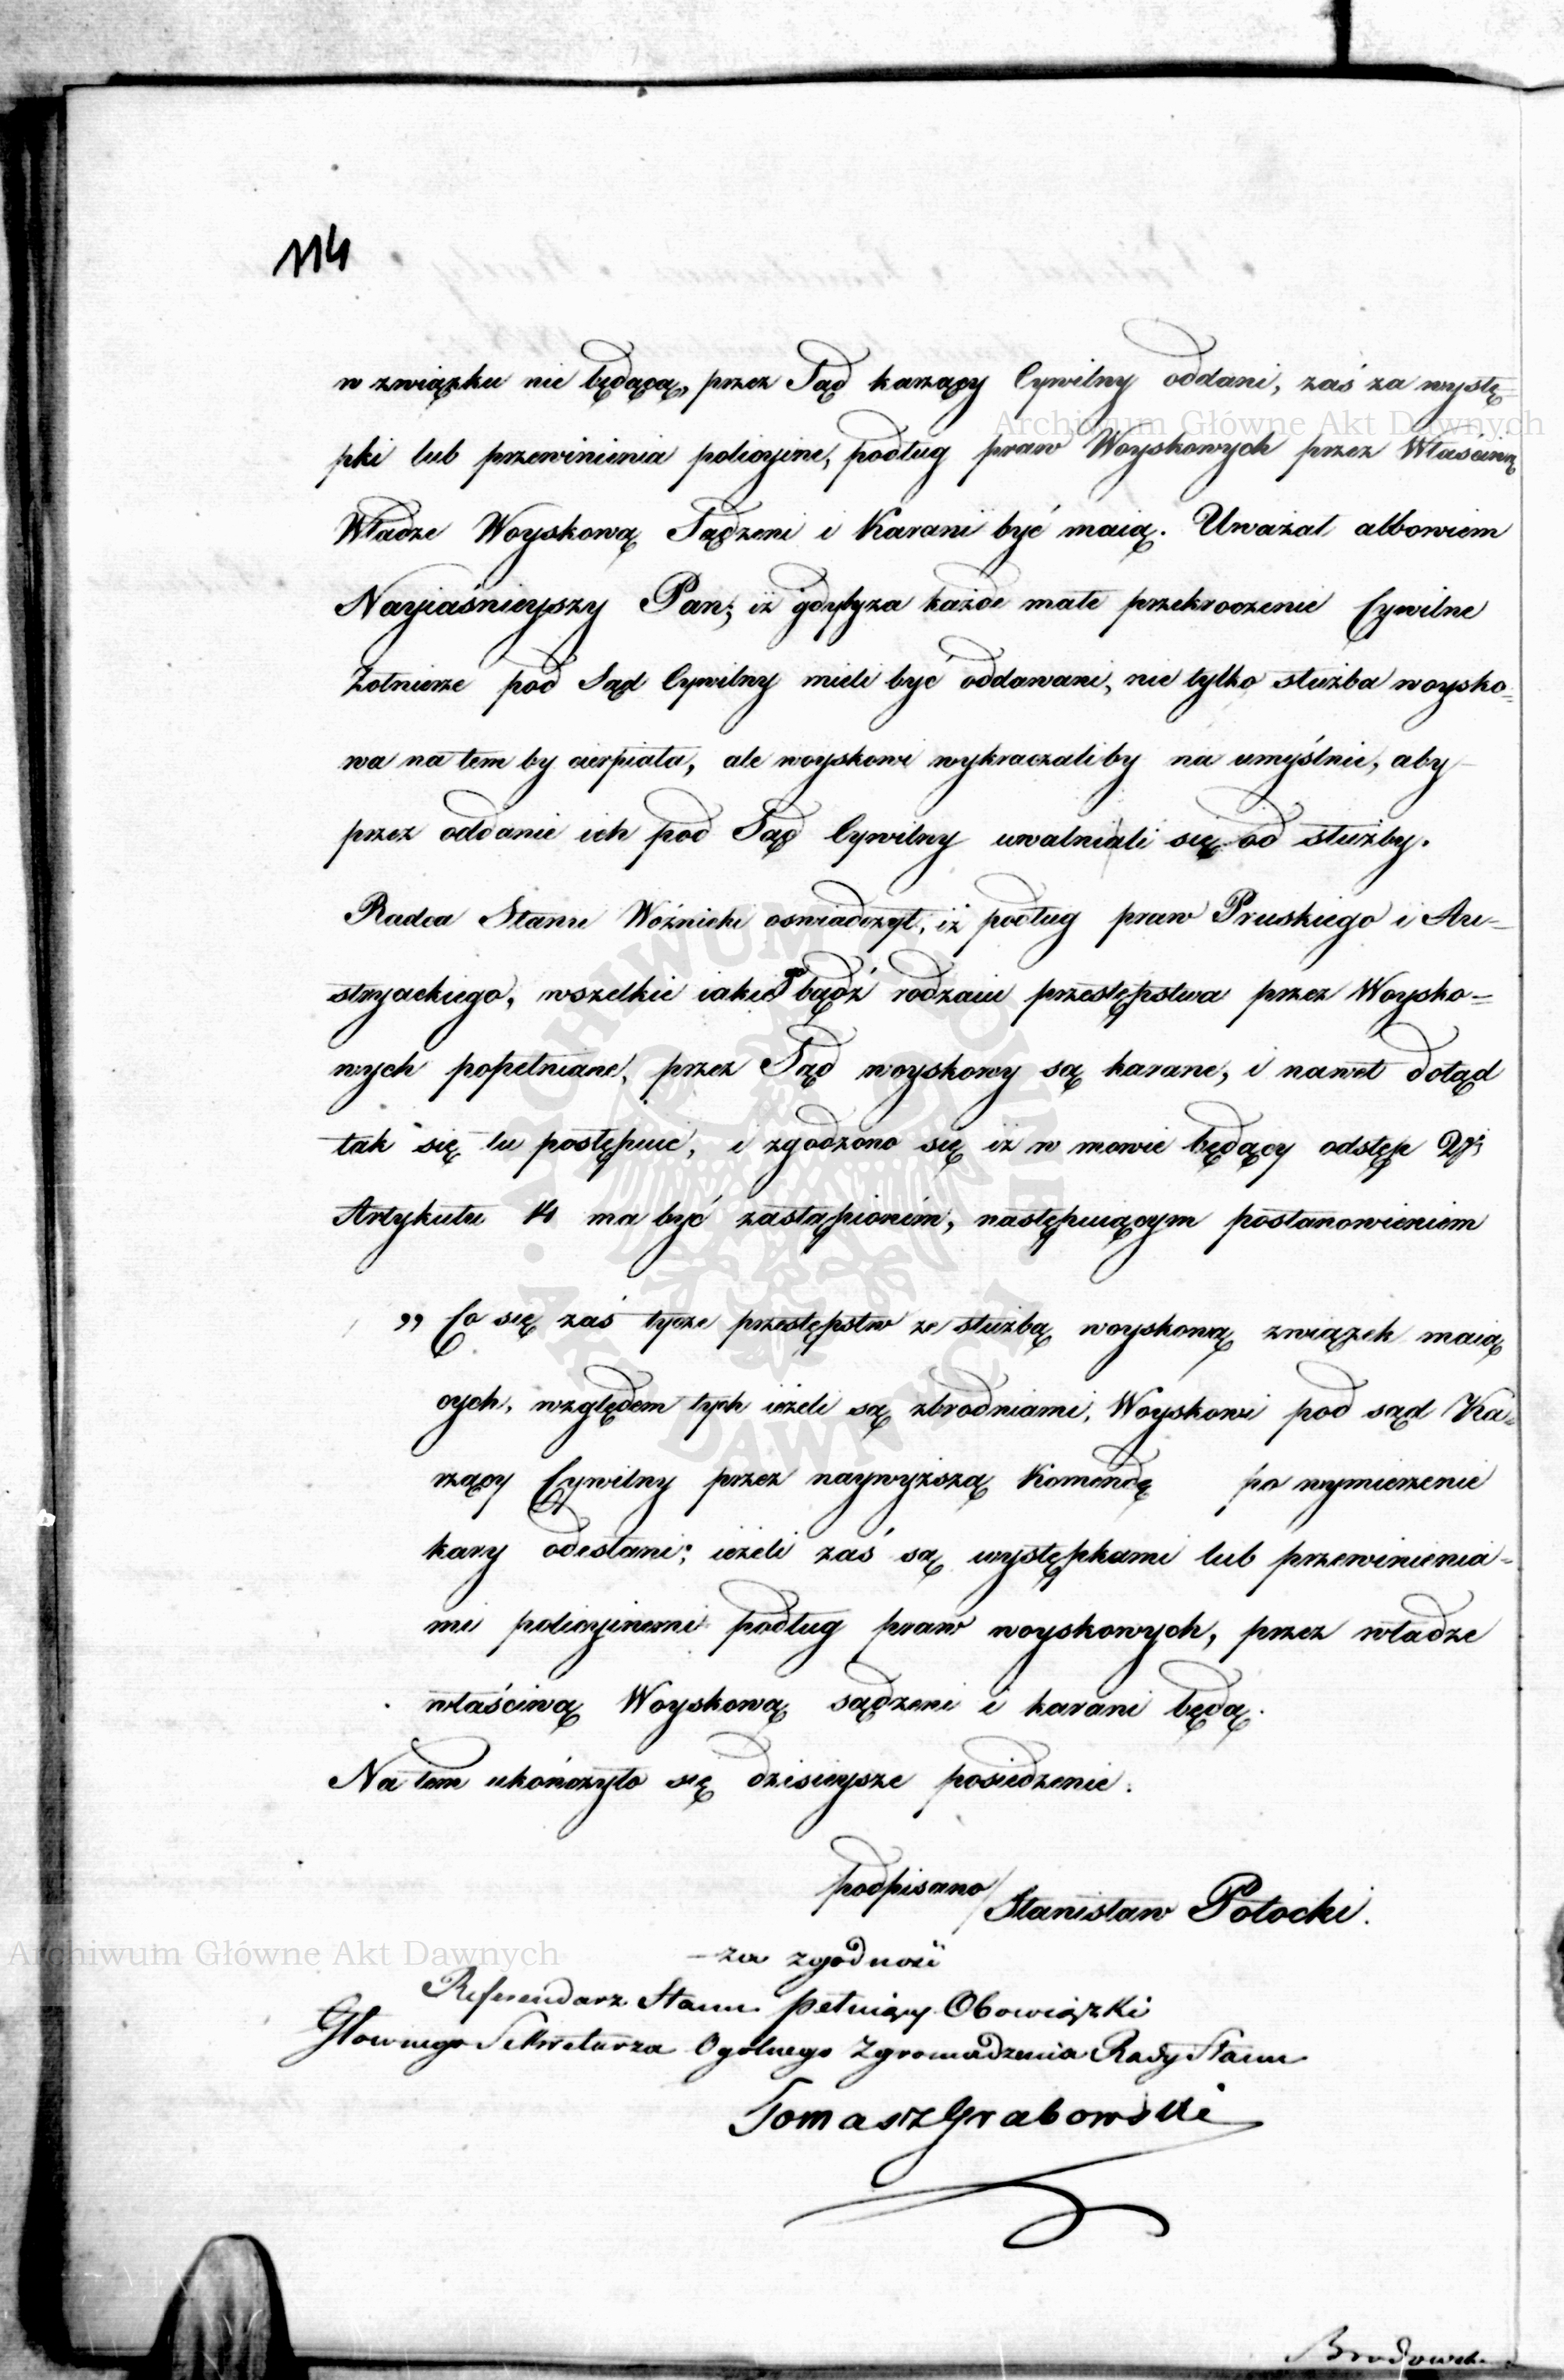 114
w związku nie będącą, przez Sąd karzący Cywilny oddani, zaś za wystę=
pki lub przewinienia policyine, podług praw Woyskowych przez Właściwą
Władze Woyskową Sądzeni i Karani być maią. Uważał albowiem
Nayiaśnieyszy Pan; iż gdyby za każde małe przekroczenie Cywilne
Żołnierze pod Sąd Cywilny mieli być oddawani, nie tylko służba woysko=
wa na tem by cierpiała, ale woyskowi wykraczaliby na umyślnie, aby
przez oddanie ich pod Sąd Cywilny uwalniali się od służby.
Radca Stanu Woźnicki oswiadczył, iż podług praw Pruskiego i Au=
stryackiego, wszelkie iakiego bądź rodzaiu przestępstwa przez Woysko=
wych popełniane, przez Sąd woyskowy są karane, i nawet dotąd
tak się tu postępuie, i zgodzono się iż w mowie będący odstęp 2gi
Artykułu 14 ma być zastąpionim, następuiącym postanowieniem
„ Co się zaś tycze przestępstw ze służbą woyskową związek maią
cych, względem tych ieżeli są zbrodniami, Woyskowi pod sąd Ka=
rzący Cywilny przez naywyższą Komendę po wymierzenie
kary odesłani; ieżeli zaś są występkami lub przewinienia=
mi policyinemi podług praw woyskowych, przez władze
właściwą Woyskową sądzeni i karani będą.
Na tem ukończyło się dzisieysze posiedzenie.
podpisano/ Stanisław Potocki.
za zgodność
Referendarz Stanu pełniący Obowiązki
Głownego Sekretarza Ogolnego Zgromadzenia Rady Stanu
Tomasz Grabowski
Archiwum Główne Akt Dawnych
Archiwum Główne Akt Dawnych
ARCHIWUM GŁÓWNE AKT DAWNYCH